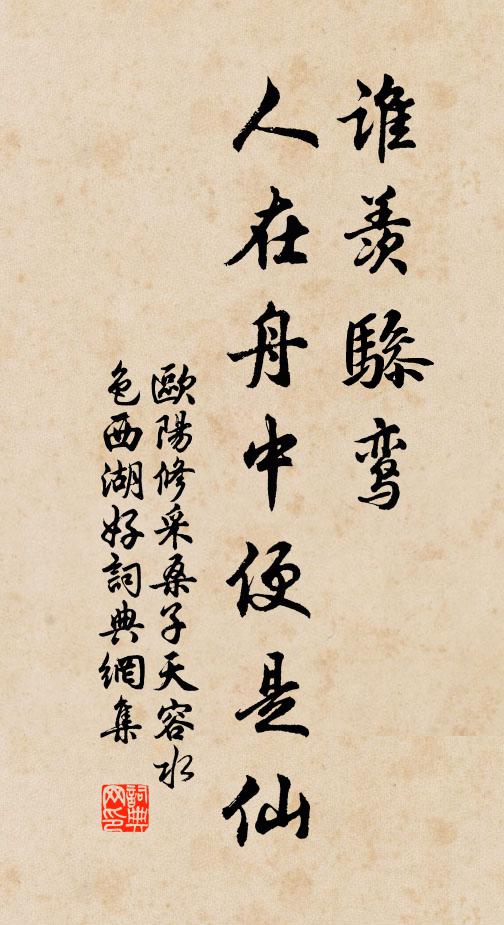 谁羡驂鸾
人在舟中便是仙
歐陽修采桑子天容水
色西湖好詞典網集
詞典
网印